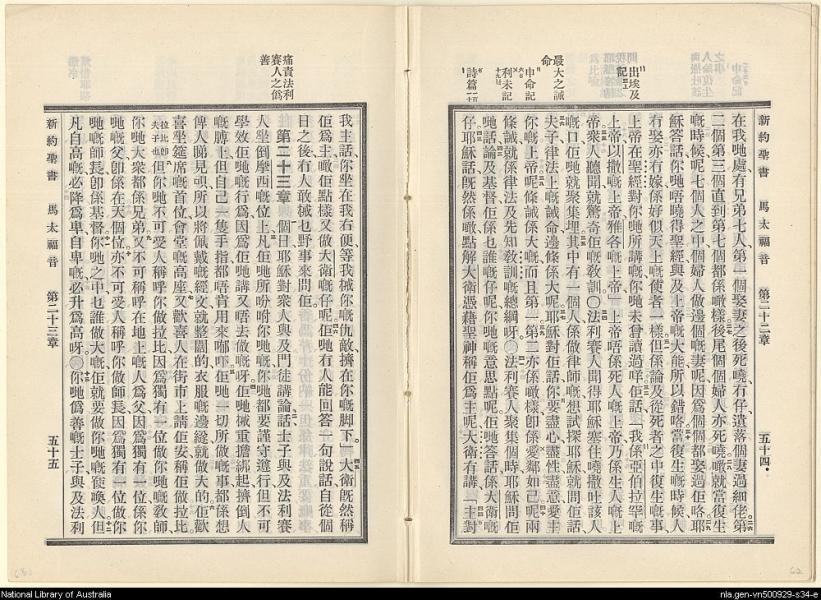 新約聖書 馬太福音 第二十二章 五十四
在我哋處有兄弟七人第一個娶妻之後死嘵冇仔遺落個妻過細佬第
二個第三個直到第七個都係噉樣後尾個個婦人亦死嘵噉就當復生
嘅時候呢七個人之中個婦人做邊個嘅妻呢因爲個個都娶過佢咯耶
穌答話你哋唔曉得聖經與及上帝嘅大能所以錯咯當復生嘅時候人
冇娶亦冇嫁係好似天上嘅使者一樣但係論及從死者之中復生嘅事
上帝在聖經對你哋所講嘅你哋未曾讀過咩佢話我係亞伯拉罕嘅
上帝以撒嘅上帝雅各嘅上帝上帝唔係死人嘅上帝乃係生人嘅上
帝衆人聽聞就驚奇佢嘅教訓〇法利賽人聞得耶穌塞住嘵撒吐該人
嘅口佢哋就聚集埋其中有一個人係做律師嘅想試探耶穌就問佢話
夫子律法上嘅誡命邊條係大呢耶穌對佢話你要盡心盡性盡意愛主
你嘅上帝呢條誡係大嘅而且第一第二亦係噉樣卽係愛鄰如己呢兩
條誡就係律法及先知敎訓嘅總綱呀〇法利賽人聚集個時耶穌問佢
哋話論及基督佢係乜誰嘅仔呢你哋嘅意思點呢佢哋答話係大衛嘅
仔耶穌話旣然係噉點解大衛憑藉聖神稱佢爲主呢大衛有講主對
出埃及記
最大之誡命
申命記
利未記
詩篇
我主話你坐在我右便等我搣你嘅仇敵擠在你嘅脚下大衛旣然稱
佢爲主噉佢點樣又做大衛嘅仔呢佢哋冇人能回答一句說話自從個
日之後冇人敢搣乜野事來問佢
第二十三章 個日耶穌對衆人與及門徒講論話士子與及法利賽
人坐倒摩西嘅位上凡佢哋所吩咐你哋嘅你哋都要謹守遵行但不可
學效佢哋嘅行爲因爲佢哋講又唔去做嘅呀佢哋搣重擔綁起擠倒人
嘅膊上但自己一隻手指都唔肯用來𢱕吓佢哋一切所做嘅事都係想
俾人睇見嘅所以將佩戴嘅經文就整闊的衣服嘅邊繸就做大的佢歡
喜坐筵席嘅首位會堂嘅高座又歡喜人在街市上請佢安稱佢做拉比
但你哋不可受人稱呼你做拉比因爲獨有一位做你哋嘅敎師
你哋大衆都係兄弟又不可稱呼在地上嘅人爲父因爲獨有一位係你
哋嘅父卽係在天個位亦不可受人稱呼你做師長因爲獨有一位做你
哋嘅師長卽係基督你哋之中乜誰做大嘅佢就要做你哋嘅使喚人但
凡自高嘅必降爲卑自卑嘅必升爲高呀〇你哋爲善嘅士子與及法利
新約聖書 馬太福音 第二十三章 五十五
痛責法利賽人之僞善
National Library of Australia
nla.gen-vn500929-s34-e